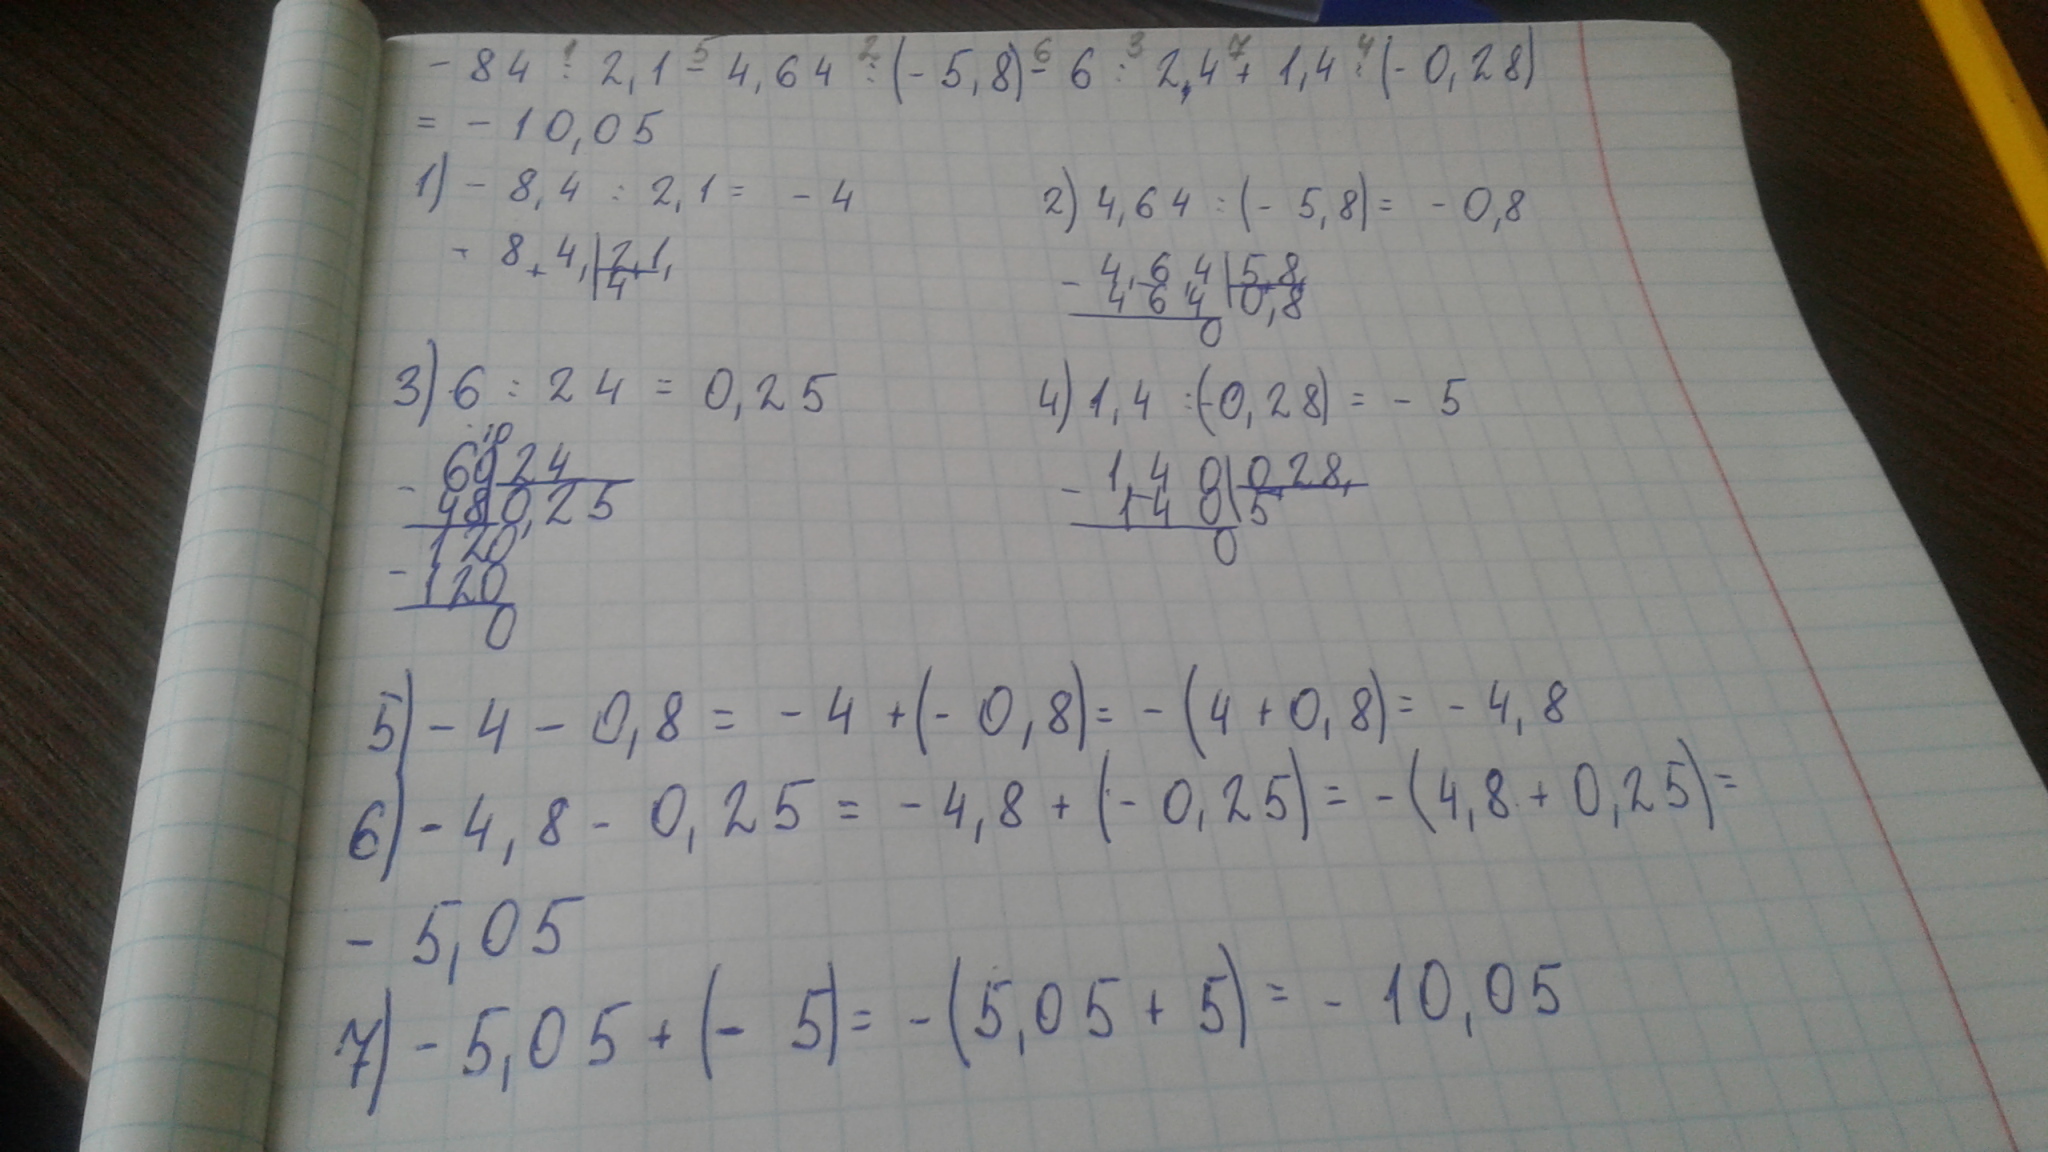 - 84 : 2,1 - 4,64 : (- 5,8) - 6 : 2,4 + 1,4 : (- 0,28)
1 5 2 6 3 7 4
= - 10,05
1) - 8,4 : 2,1 = - 4
2) 4,64 : (- 5,8) = - 0,8
- 8,4, | 2,1,
4
- 4,6,4 | 5,8,
4 6 4 0,8
0
3) 6 : 24 = 0,25
4) 1,4 : (-0,28) = - 5
10
- 60 | 24
48 0,25
120
- 120
0
- 1,4 0 | 0,28,
1 4 0 5
0
5) - 4 - 0,8 = - 4 + (- 0,8) = - (4 + 0,8) = - 4,8
6) - 4,8 - 0,25 = - 4,8 + (- 0,25) = - (4,8 + 0,25) =
- 5,05
7) - 5,05 + (- 5) = - (5,05 + 5) = - 10,05